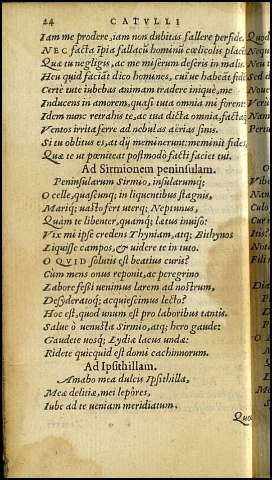 24 CATVLLI
Iam me prodere, iam non dubitas fallere perfide.
NEC facta ipia fallacũ hominũ cœlicolis place
Quæ tu negligis, ac me miserum deseris in malis.
Heu quid faciãt dico homines, cui'ue habeãt fidẽ
Certe tute iubebas animam tradere inique, me
Inducens in amorem, quasi tuta omnia mi forent
Idem nunc retrahis te, ac tua dicta omnia, factaq;
Ventos irrita ferre ad nebulas aërias sinis.
Si tu oblitus es, at dij meminerunt: meminit fides,
Quæ te ut pœniteat postmodò facti faciet tui.
Ad Sirmionem peninsulam.
Peninsularum Sirmio, insularumq;
Ocelle, quascunq; in liquentibus stagnis,
Mariq; uasto fert uterq; Neptunus,
Quam te libenter, quamq; lætus inuiso:
Vix mi ipse credens Thyniam, atq; Bithynos
Liquisse campos, & uidere te in tuto.
O QVID solutis est beatius curis?
Cum mens onus reponit, ac peregrino
Labore fessi uenimus larem ad nostrum,
Desyderatoq; acquiescimus lecto?
Hoc est, quod unum est pro laboribus tantis.
Salue ò uenusta Sirmio, atq; hero gaude:
Gaudete uosq; Lydiæ lacus undæ:
Ridete quicquid est domi cachinnorum.
Ad Ipsithillam.
Amabo mea dulcis Ipsithilla,
Meæ delitiæ, mei lepôres,
Iube ad te ueniam meridiatum.
Quo